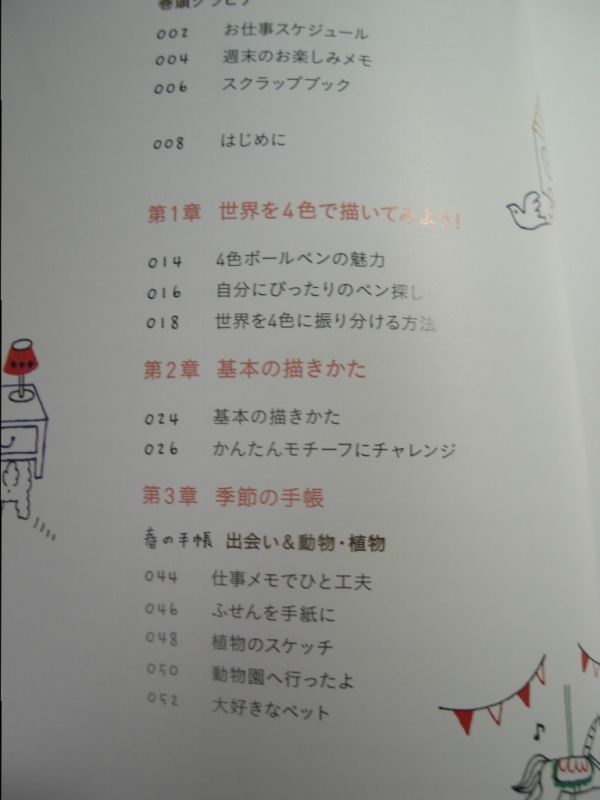 巻頭グラビア
002 お仕事スケジュール
004 週末のお楽しみメモ
006 スクラップブック
008 はじめに
第1章 世界を4色で描いてみよう!
014 4色ボールペンの魅力
016 自分にぴったりのペン探し
018 世界を4色に振り分ける方法
第2章 基本の描きかた
024 基本の描きかた
026 かんたんモチーフにチャレンジ
第3章 季節の手帳
春の手帳 出会い&動物・植物
044 仕事メモでひと工夫
046 ふせんを手紙に
048 植物のスケッチ
050 動物園へ行ったよ
052 大好きなペット